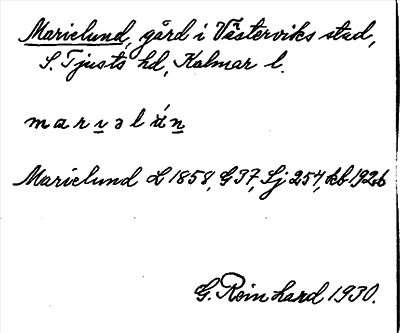 Marielund, gård i Västerviks stad,
S. Tjusts hd, Kalmar l.
Marielund L 1858, G 37, Sj 254, kb 1926
G. Reinhard 1930.